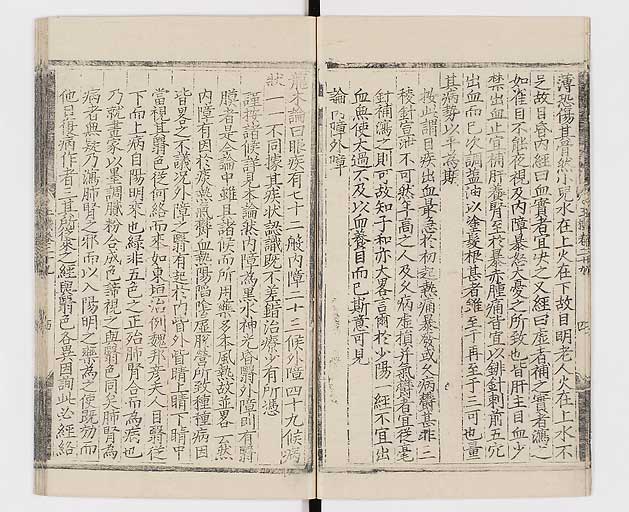 薄恐傷其腎然小兒水在上火在下故目明老人火在上水不
足故目昏內經曰血實者宜决之又經曰虛者補之實者瀉之
如雀目不能夜視及內障暴怒大憂之所致也皆肝主目血少
禁出血止宜補肝養腎至於暴赤腫痛皆宜以鈹針刺前五穴
出血而已次調盬油以塗髮根甚者雖至于再至于三可也量
其病勢以平為期
按此謂目疾出血最急於初起熱痛暴發或久病欝甚非三
稜針宣泄不可然年高之人及久病虛損并氣欝者宜從毫
針補瀉之則可故知子和亦大畧言爾於少陽一經不宜出
血無使太過不及以血養目而已斯意可見
論內障外障
龍木論曰眼疾有七十二般內障二十三候外障四十九候病
狀一一不同據其疾狀認識既不差錯治療少有所憑
謹按諸候詳見本論然內障為黑水神光昏翳外障則有翳
膜者是今論中雖具諸候而所用藥多本風熱故並畧云然
內障有因於痰熱氣欝血熱陽陷陰虛脫營所致種種病因
皆畧之不議况外障之翳有起於內眥外眥睛上睛下睛中
當視其翳色從何絡而來如東垣治例魏邦彥夫人目翳從
下而上病自陽明來也綠非五色之正殆肺腎合而為病也
乃就畫家以墨調膩粉合成色諦視之與翳色同矣肺腎為
病者無疑乃瀉肺腎之邪而以入陽明之藥為之使既効而
他日復病作者三其所來之經與翳色各異因詢此必經絡